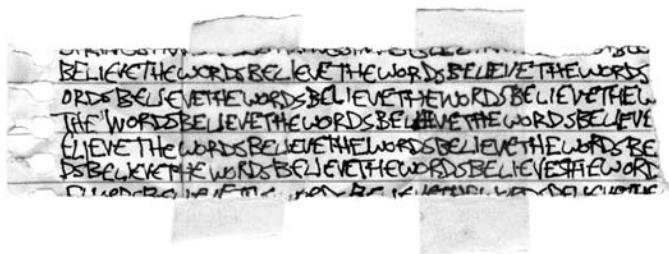 BELIEVETHEWORDSBELIEVETHEWORDSBELIEVETHEWORDS
ORDSBELIEVETHEWORDSBELIEVETHEWORDSBELIEVETHEW
THEWORDSBELIEVETHEWORDSBELIEVETHEWORDSBELIEVE
ELIEVETHEWORDSBELIEVETHEWORDSBELIEVETHEWORDSBE
DSBELIEVETHEWORDSBELIEVETHEWORDSBELIEVESTHEWORD